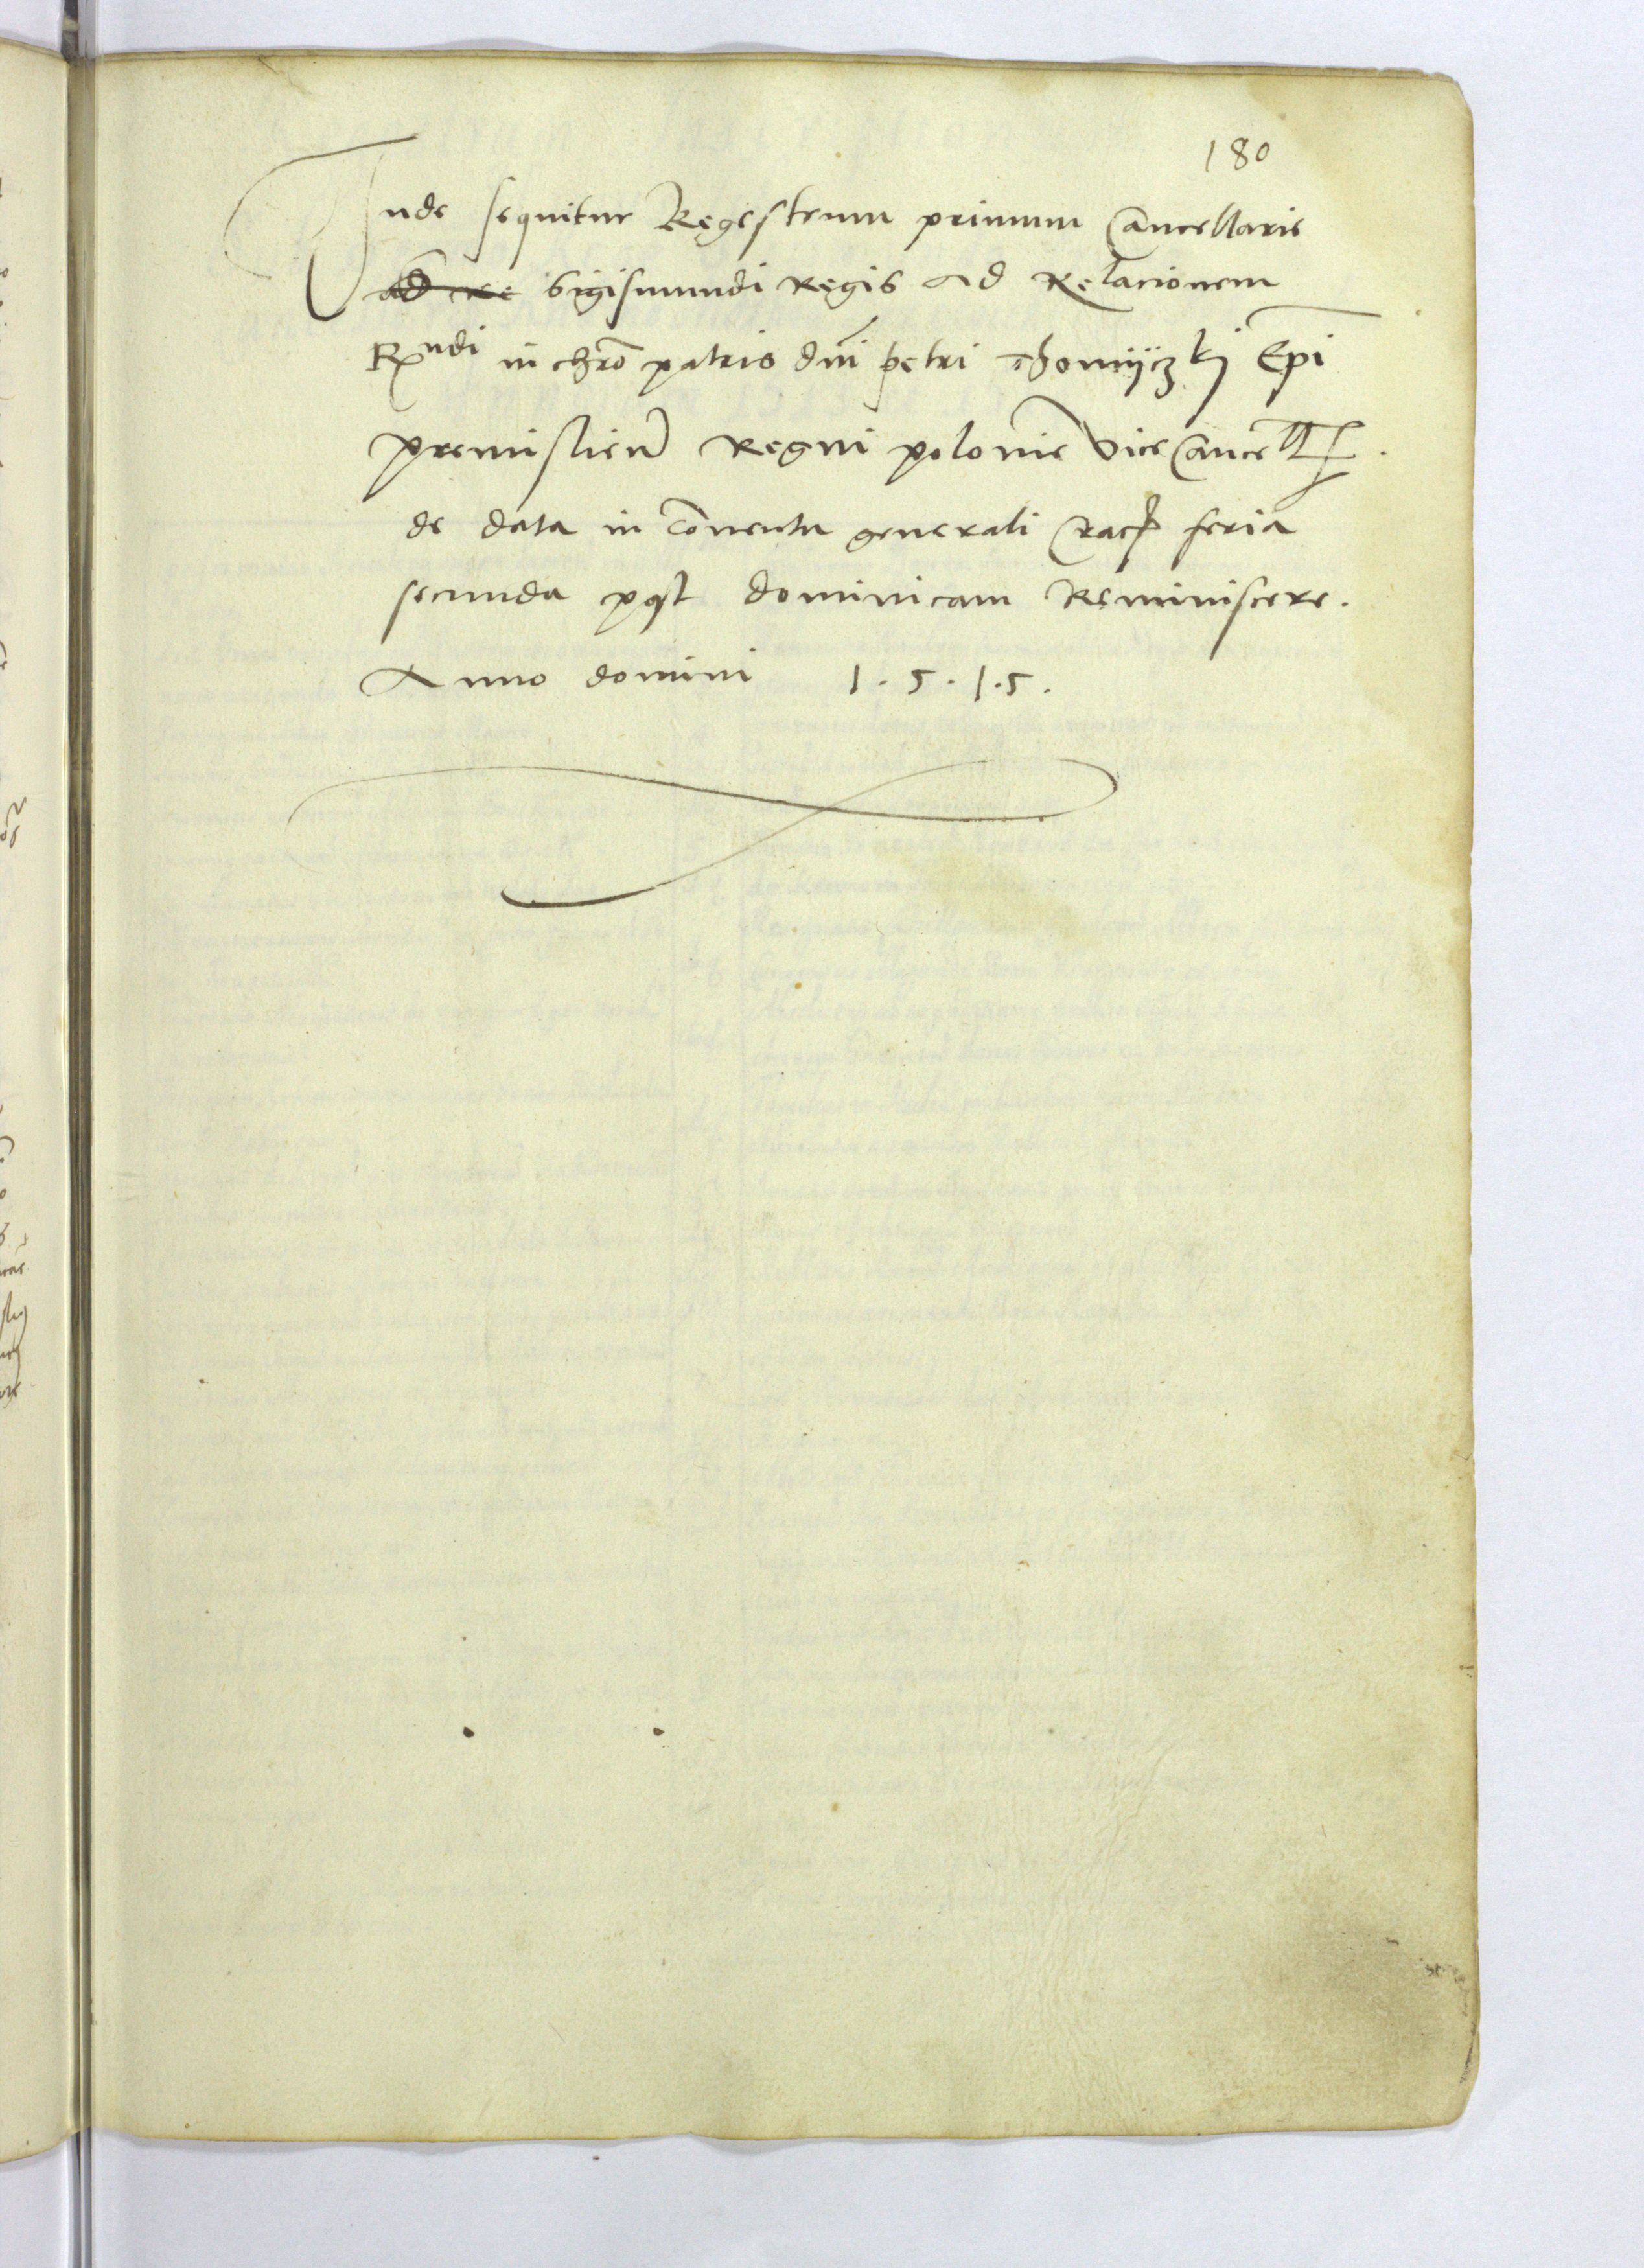 180
Inde sequitur Regestrum primum Cancellarie
ad re Sigismundi Regis Ad Relacionem
Rndi in chro patris dni petri Thomijczkj Epi
premislien Regni polonie ViceCancell
de data in Conuentu generali Crac feria
secunda post dominicam Reminiscere.
Anno domini 1.5.1.5.